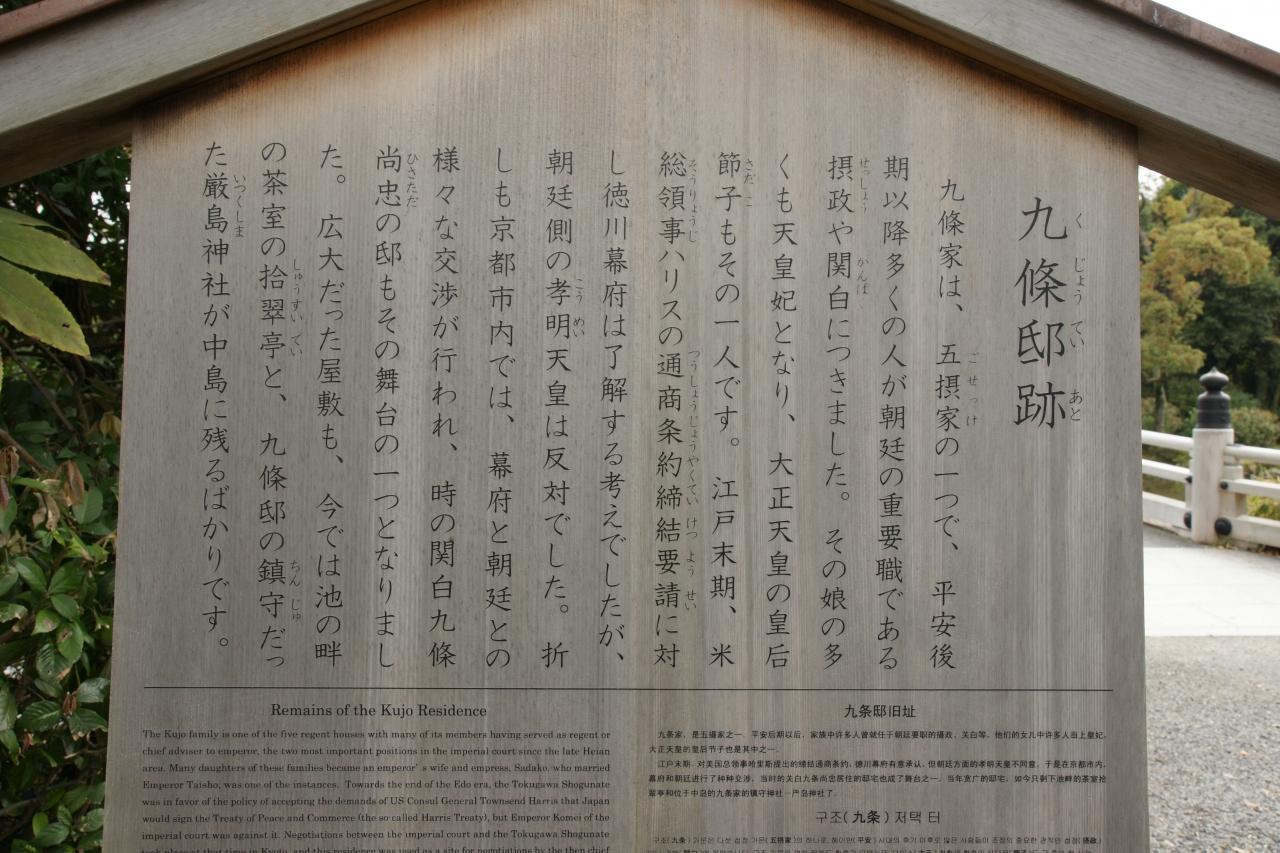 九條邸跡
九條家は、五摂家の一つで、平安後
期以降多くの人が朝廷の重要職である
摂政や関白につきました。その娘の多
くも天皇妃となり、大正天皇の皇后
節子もその一人です。江戸末期、米
総領事ハリスの通商条約締結要請に対
し徳川幕府は了解する考えでしたが、
朝廷側の孝明天皇は反対でした。折
しも京都市内では、幕府と朝廷との
様々な交渉が行われ、時の関白九條
尚忠の邸もその舞台の一つとなりまし
た。広大だった屋敷も、今では池の畔
の茶室の拾翠亭と、九條邸の鎮守だっ
た厳島神社が中島に残るばかりです。
Remains of the Kujo Residence
The Kujo family is one of the five regent houses with many of its members having served as regent or
chief adviser to emperor, the two most important positions in the imperial court since the late Heian
area. Many daughters of these families became an emperor's wife and empress, Sadako, who married
Emperor Taisho, was one of the instances. Towards the end of the Edo era, the Tokugawa Shogunate
was in favor of the policy of accepting the demands of US Consul General Townsend Harris that Japan
would sign the Treaty of Peace and Commerce (the so called Harris Treaty), but Emperor Komei of the
imperial court was against it. Negotiations between the imperial court and the Tokugawa Shogunate
took place at that time in Kyoto, and this residence was used as a site for negotiations by the then chief
九条邸旧址
九条家，是五摄家之一，平安后期以后，家族中许多人曾就任于朝廷要职的摄政，关白等。他们的女儿中许多人当上皇妃，
大正天皇的皇后节子也是其中之一．
江户末期，对美国总领事哈里斯提出的缔结通商条约，德川幕府有意承认，但朝廷方面的孝明天皇不同意，于是在京都市内，
幕府和朝廷进行了种种交涉，当时的关白九条尚忠居住的邸宅也成了舞台之一。当年宽广的邸宅，如今只剩下池畔的茶室拾
翠亭和位于中岛的九条家的镇守神社－严岛神社了．
구조(九条) 저택 터
구조(九条) 가문은 다섯 섭정 가문(五摂家)의 하나로, 헤이안(平安) 시대의 후기 이후로 많은 사람들이 조정의 중요한 관직인 섭정(摂政)